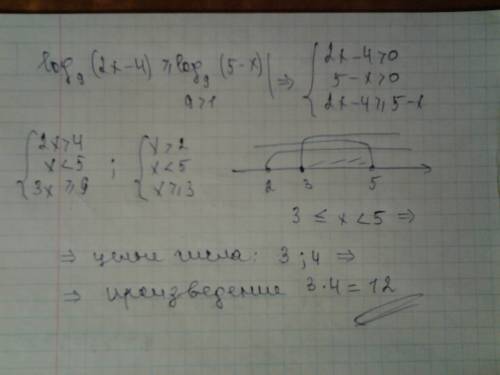 log₉(2x-4) ⩾ log₉(5-x) | ⇒ { 2x-4>0
5-x>0
9>1
2x-4⩾5-x
{ 2x>4 ; { x>2
x<5 x<5
3x⩾9 x⩾3
2 3 5
3 ≤ x < 5 ⇒
⇒ целые числа: 3 ; 4 ⇒
⇒ произведение 3·4=12